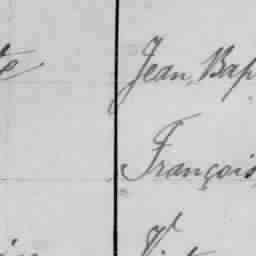 te Jean Bap
François